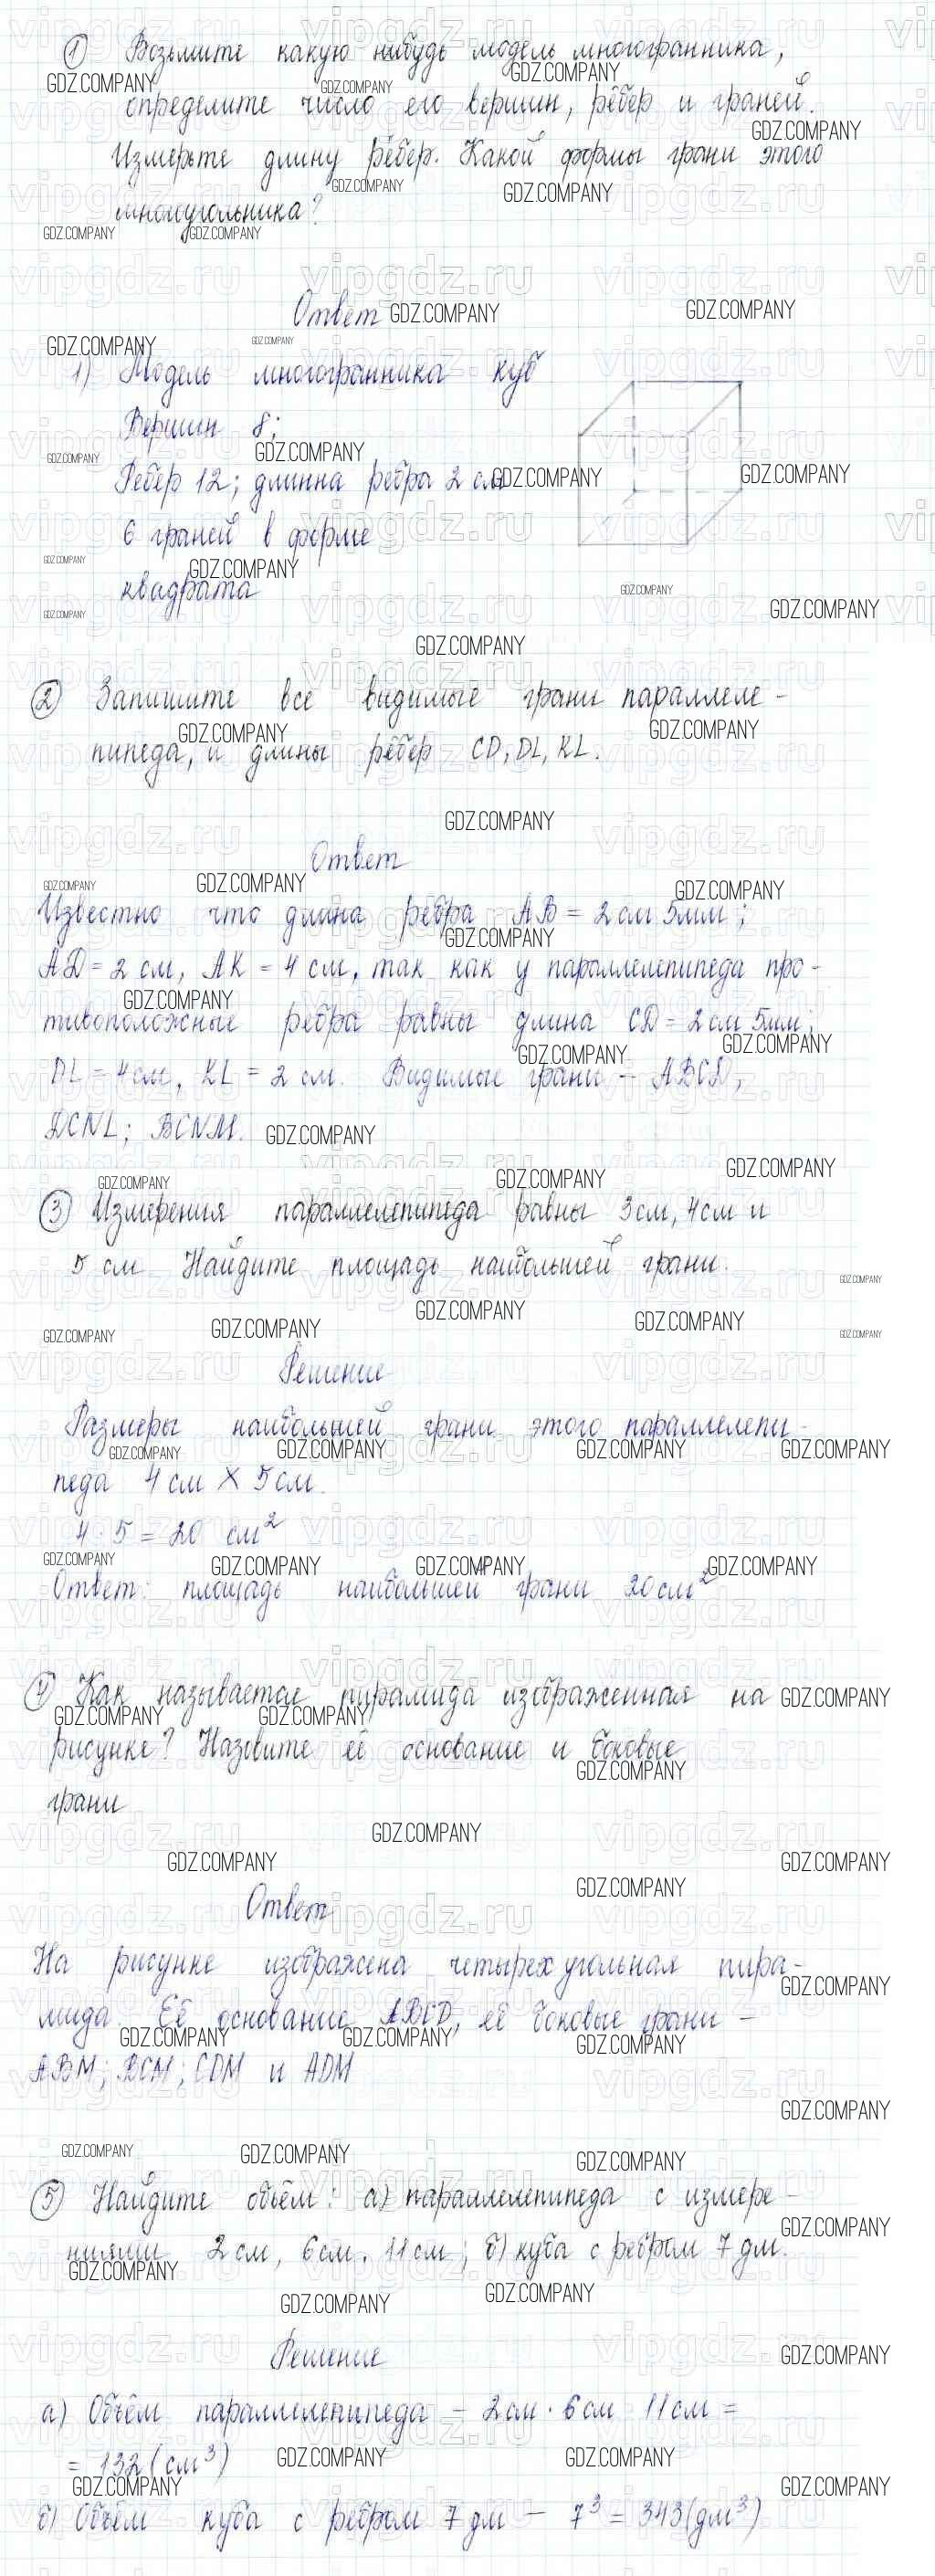 1 Возьмите какую нибудь модель многогранника,
определите число его вершин, рёбер и граней.
Измерьте длину рёбер. Какой формы грани этого
многоугольника?
Ответ
1) Модель многогранника куб
Вершин 8;
Ребер 12; длинна ребра 2 см
6 граней в форме
квадрата
2 Запишите все видимые грани параллеле-
пипеда, и длины рёбер CD, DL, KL.
Ответ
Известно что длина ребра AB = 2 см 5 мм;
AD = 2 см, AK = 4 см, так как у параллелепипеда про-
тивоположные ребра равны длина CD = 2 см 5 мм;
DL = 4 см, KL = 2 см. Видимые грани - ABCD,
DCNL; BCNM.
3 Измерения параллелепипеда равны 3 см, 4 см и
5 см Найдите площадь наибольшей грани.
Решение
Размеры наибольшей грани этого параллелепи-
педа 4 см × 5 см.
4 · 5 = 20 см²
Ответ: площадь наибольшей грани 20 см²
4 Как называется пирамида изображенная на
рисунке? Назовите её основание и боковые
грани
Ответ
На рисунке изображена четырехугольная пира-
мида. Её основание ABCD, её боковые грани -
ABM; BCM; CDM и ADM
5 Найдите объём: а) параллелепипеда с измере-
ниями 2 см, 6 см, 11 см; б) куба с ребром 7 дм.
Решение
а) Объём параллелепипеда - 2 см · 6 см 11 см =
= 132 (см³)
б) Объём куба с ребром 7 дм - 7³ = 343 (дм³)
GDZ.COMPANY
vipgdz.ru